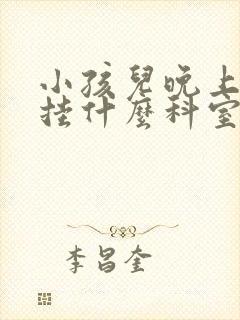 小孩儿晚上
挂什麽科室
李昌奎